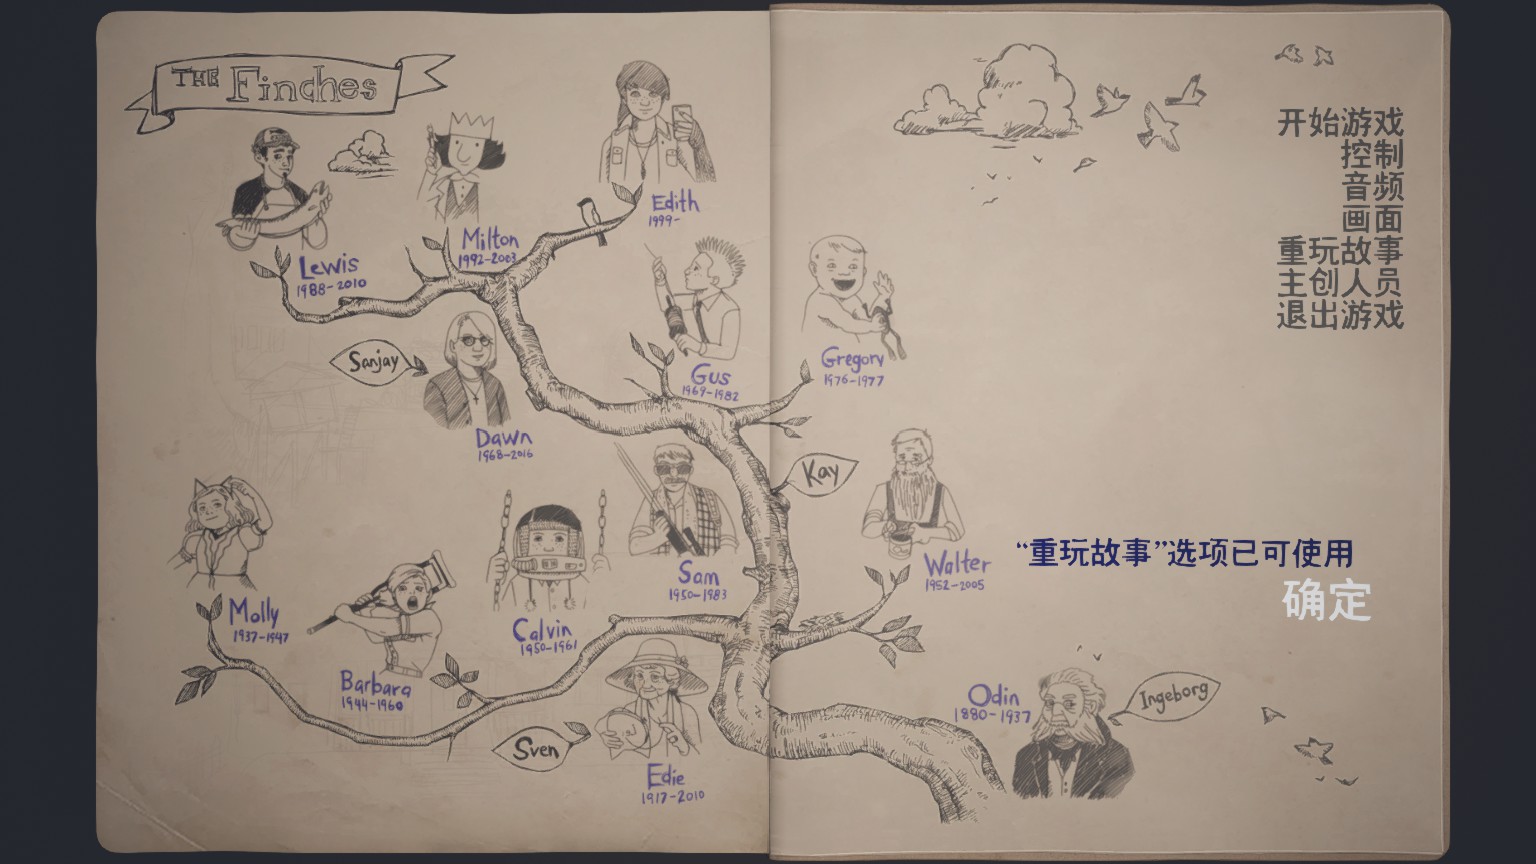 THE Finches
Edith
1999-
Milton
1992-2003
Lewis
1988-2010
Sanjay
Dawn
1968-2016
Gus
1969-1982
Gregory
1976-1977
Kay
Walter
1952-2005
Sam
1950-1983
Calvin
1950-1961
Molly
1937-1947
Barbara
1944-1960
Sven
Edie
1917-2010
Odin
1880-1937
Ingeborg
开始游戏
控制
音频
画面
重玩故事
主创人员
退出游戏
“重玩故事”选项已可使用
确定